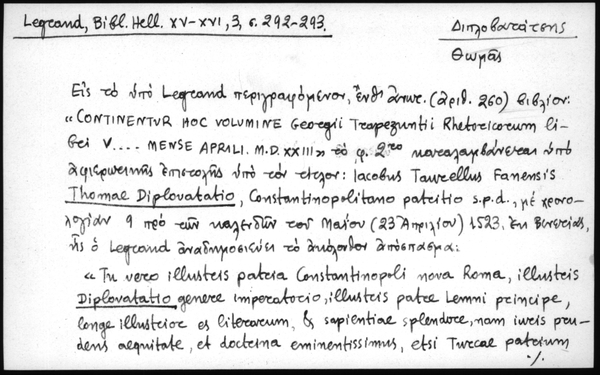 Legrand, Bibl. Hell. XV-XVI, 3, σ. 292-293.
Διπλοβατάτσης
Θωμᾶς
Εἰς τὸ ὑπὸ Legrand περιγραφόμενον, ἔνθ' ἀνωτ. (ἀριθ. 260) βιβλίον:
« CONTINENTUR HOC VOLUMINE Georgii Trapezuntii Rhetoricorum li-
bri V.... MENSE APRILI. M.D.XXIII » τὸ φ. 2ʳᵒ καταλαμβάνεται ὑπὸ
ἀφιερωτικῆς ἐπιστολῆς ὑπὸ τὸν τίτλον: Iacobus Taurellus Fanensis
Thomae Diplovatatio, Constantinopolitano patritio s.p.d., μὲ χρονο-
λογίαν 9 πρὸ τῶν καλενδῶν τοῦ Μαΐου (23 Ἀπριλίου) 1523. ἐκ Βενετίας,
ἧς ὁ Legrand ἀναδημοσιεύει τὸ ἀκόλουθον ἀπόσπασμα:
« Tu vero illustris patria Constantinopoli nova Roma, illustris
Diplovatatio genere imperatorio, illustris patre Lemni principe,
longe illustrior es literarum, & sapientiae splendore, nam iuris pru-
dens aequitate, et doctrina eminentissimus, etsi Turcae patrium
./.